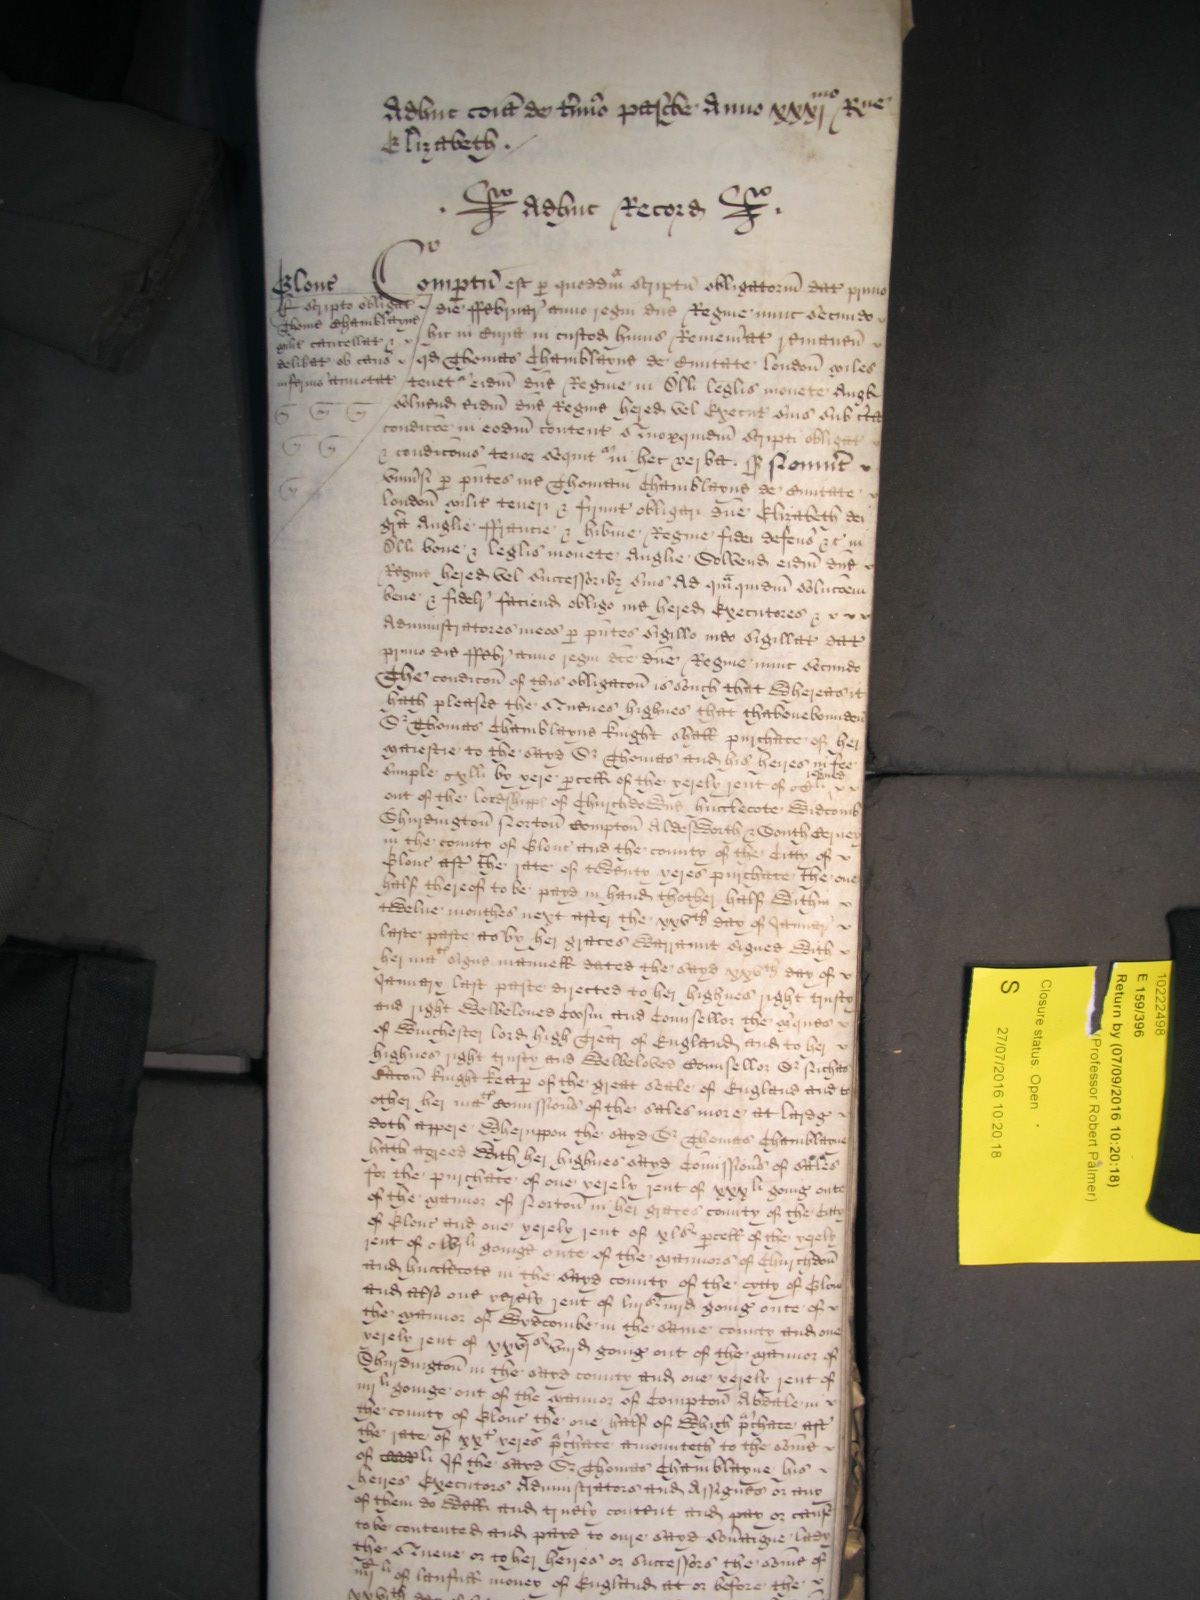 Adhuc coia de t'mio pasche Anno xxxj mo R ne
Elizabeth .
Adhuc Record
Glouc
Compt'u est p quodd'm Scriptu obligatoriu dat primo
R Scripto obligat
Thome Chamblayne
milit cancellat &
delibat ob caus
inferius annotat
die ffebruar anno regni dne Regine nunc secundo
hic in Curia in custod huius Rememorat remanen
qd Thomas Chamblayne de Civitate London miles
tenet eidm dne Regine in li leglis monete Angl
Solvend eidm dne Regine hered vel Execut suis sub
condicoe in eodm content quidm Scripti obligat
& condicionis tenor sequit in hec verba . Noverint
univ'si p p'ntes me Thomam Chamblayne de Civitate
London milit teneri & firmit obligari dne Elizabeth dei
gra Anglie ffrancie & hib'nie Regine fidei defens &c in
li bone & leglis monete Anglie Solvend eidm dne
Regine hered vel Successorib3 suis Ad qua'quidm soluc'oem
bene & fidel'r faciend obligo me hered Executores &
Administratores meos p p'ntes sigillo meo sigillat dat
primo die ffebr' anno regni dce dne Regine nunc secundo
The condicon of this obligacon is such that Whereas it
hath pleased the Quenes highnes that thabovebounden
Sr Thomas Chamblayne knight shall purchace of her
maiestie to the sayd Sr Thomas and his heires in fee
simple li by yere p'cell of the yerely rent of reserved
out of the lordshipps of Churchdowne hucclecote Widcomb
Shurdington Norton Compton Aldesworth & South Cerney
in the county of Glouc and the county of the Citty of
Glouc aft' the rate of twenty yeres purchace the one
half thereof to be payd in hand thother half within
twelve monthes next after the xxvth day of January
laste paste as by her graces warraunt signed with
her mats signe manuell dated the sayd xxvth day of
January last paste directed to her highnes right trusty
and right welbeloved Cosin and Counsellor the m'ques
of Winchester lord high Trear of England and to her
highnes right trusty and welbeloved Counsellor Sr Nichas
Bacon knight keap of the great seale of England and to
other her mats Comissions of the sales more at lardg
doth appere Wheruppon the sayd Sr Thomas Chamblayne
hath agreed with her highnes sayd Comissions of sales
for the purchace of one yerely rent of xxx li going oute
of the mannor of Norton in her graces county of the Citty
of Glouc and one yerely rent of xls p'cell of the yerely
rent of li goinge oute of the mannors of Churchdon
and hucclecote in the sayd county of the citty of Glouc
and also one yerely rent of going oute of
the mannor of Wydcombe in the same county and one
yerely rent of going out of the mannor of
Shurdington in the sayd county and one yerely rent of
iiij li goinge out of the mannor of Compton Abdale in
the county of Glouc the one half of which p'chace aft'
the rate of xxti yeres p'chace amounteth to the some
of li If the sayd Sr Thomas Chamblayne his
heires Executors Administrators and Assignes or any
of them do well and truely content and pay or cause
to be contented and payd to oure sayd soveraigne lady
the Quene or to her heires or successors the some of
li of laufull money of England at or before the
xxvth
10222498
E 159/396
Return by (07/09/2016 10:20:18)
(Professor Robert Palmer)
Closure status: Open
27/07/2016 10:20:18
S